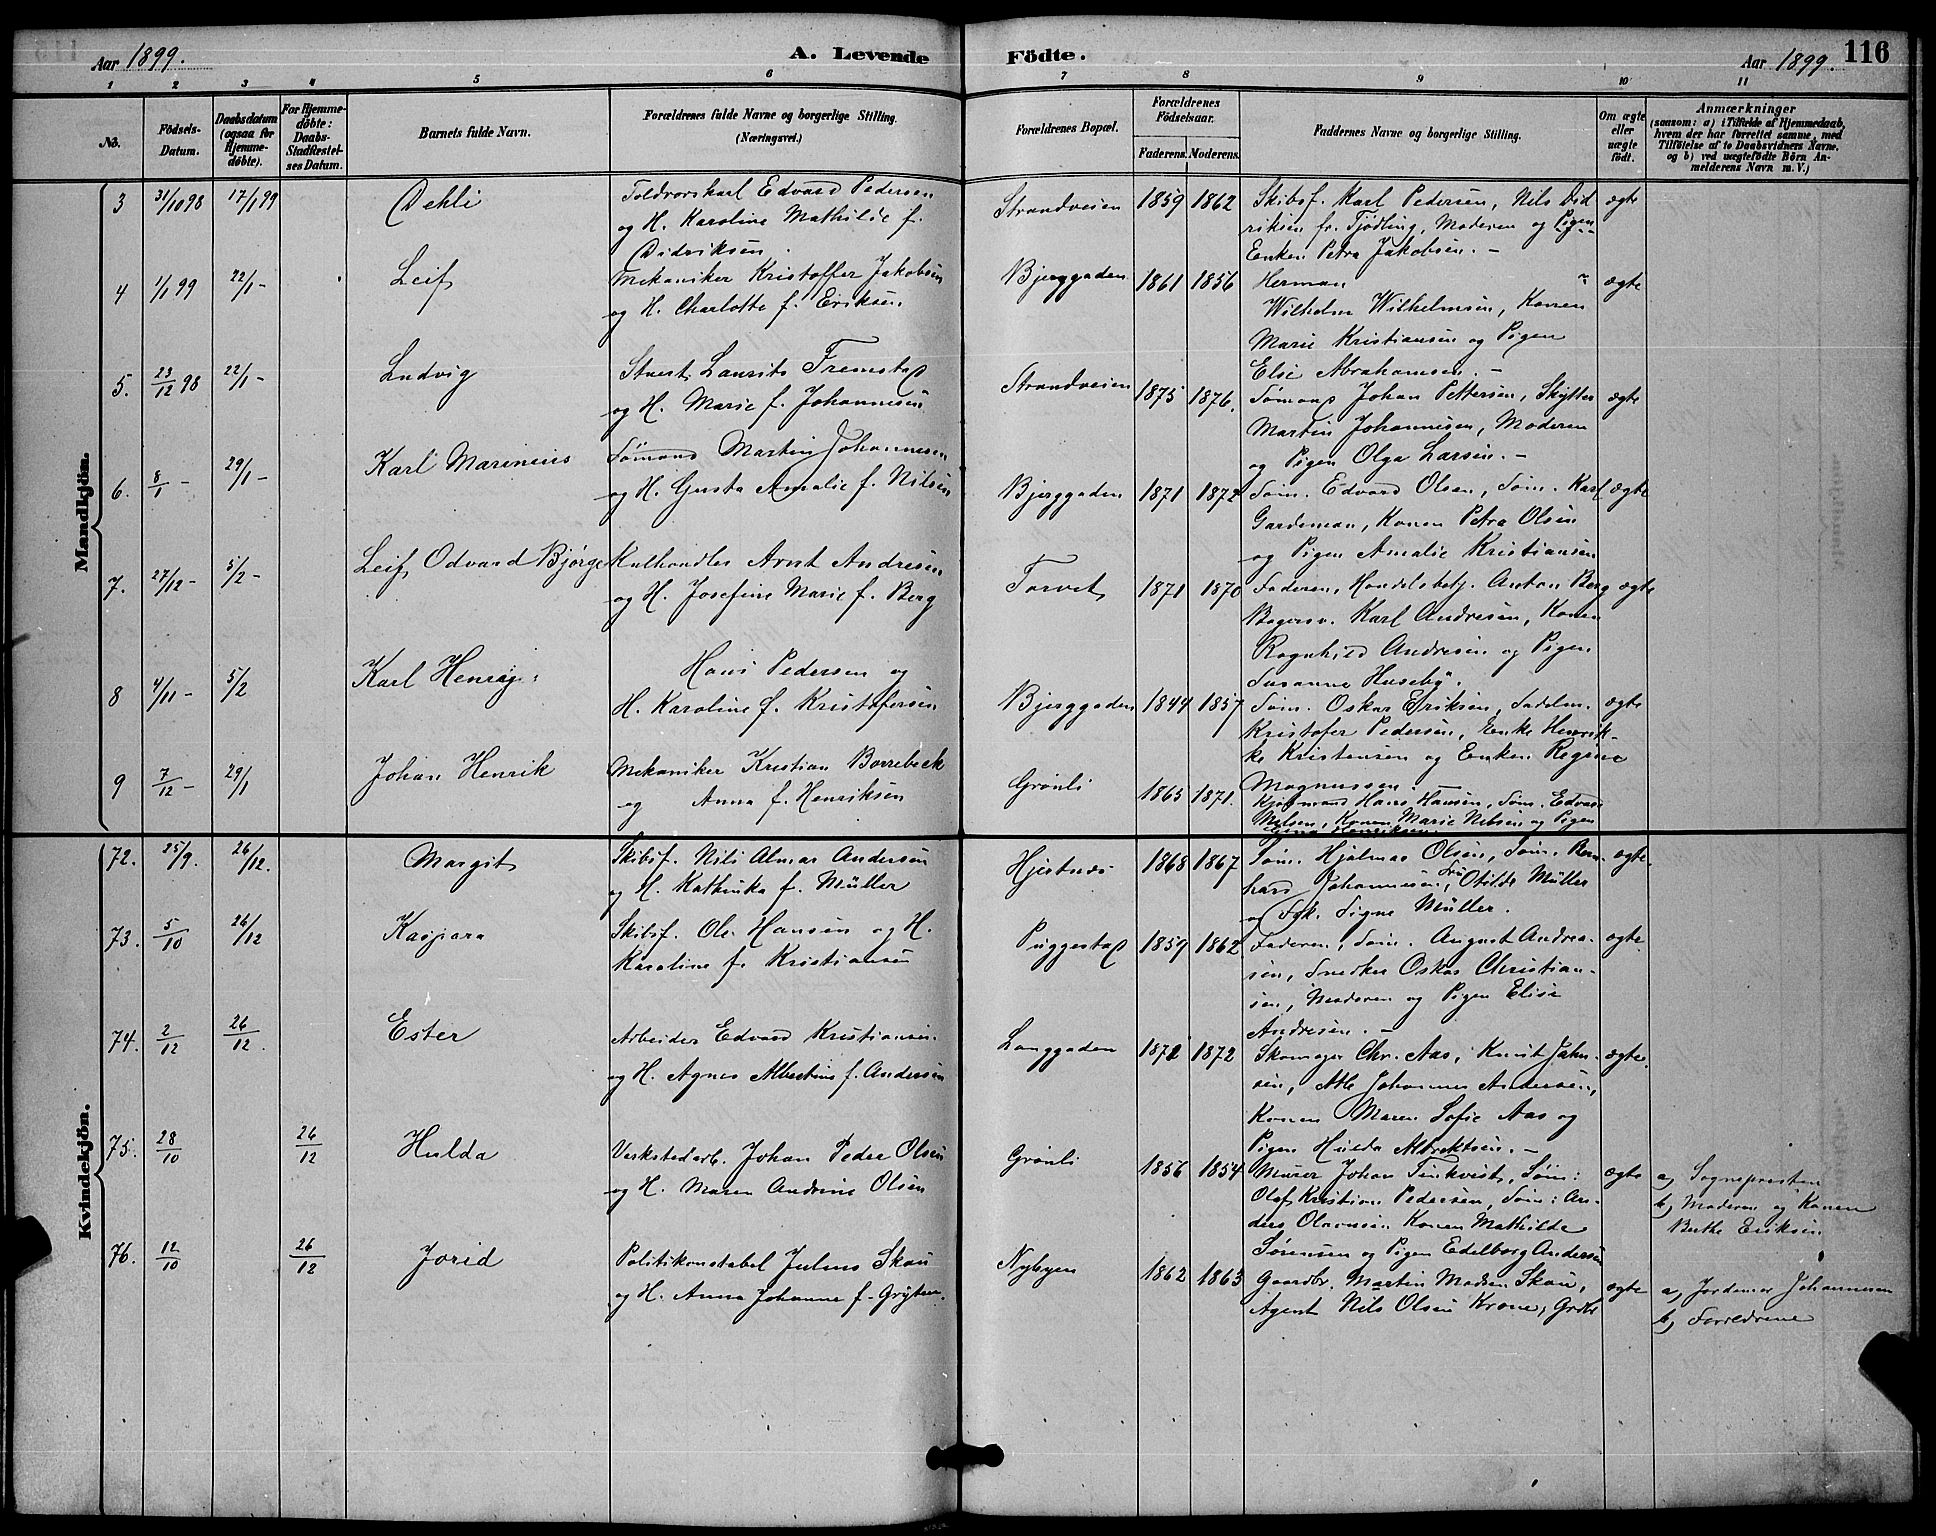 Aar 1899.
A. Levende Födte.
Aar 1899.
116
1 2 3 4 5 6 7 8 9 10 11
No.
Födsels-Datum.
Daabsdatum (ogsaa for Hjemmedöbte).
For Hjemmedöbte: Daabs-Stadfæstelses Datum.
Barnets fulde Navn.
Forældrenes fulde Navne og borgerlige Stilling. (Næringsvei.)
Forældrenes Bopæl.
Forældrenes Födselsaar.
Faderens. Moderens.
Faddernes Navne og borgerlige Stilling.
Om ægte eller uægte födt.
Anmærkninger (saasom: a) i Tilfælde af Hjemmedaab, hvem der har forrettet samme, med Tilföielse af to Daabsvidners Navne, og b) ved uægtefödte Börn Anmelderens Navn m. V.)
Mandkjön.
3 31/10 98 17/1 99 Dehli
Toldrorskarl Edvard Pedersen
og H. Karoline Mathilde f.
Didriksen.
Strandveien 1859 1862
Skibsf. Karl Pedersen, Nils Did
riksen fr. Tjödling, Moderen og Pigen
Enken Petra Jakobsen. –
ægte
4 1/1 99 22/1 – Leif
Mekaniker Kristoffer Jakobsen
og H. Charlotte f. Eriksen.
Bjerggaden 1861 1856
Herman
Wilhelm Wilhelmsen, Konen
Marie Kristiansen og Pigen
Else Abrahamsen. –
ægte
5. 23/12 98 22/1 – Ludvig
Stuert Laurits Fremstad
og H. Marie f. Johannesen
Strandveien 1875 1876.
Sømand Johan Pettersen, Skytter
Martin Johannesen, Moderen
og Pigen Olga Larsen. –
ægte
6. 8/1 – 29/1 – Karl Marinius
Sømand Martin Johannesen
og H. Gusta Amalie f. Nilsen
Bjerggaden 1871 1872
Søm. Edvard Olsen, Søm. Karl
Gardeman, Konen Petra Olsen
og Pigen Amalie Kristiansen
ægte
7. 27/12 – 5/2 – Leif Odvard Bjørge
Kulhandler Arnt Andresen
og H. Josefine Marie f. Berg
Torvet 1871 1870
Faderen, Handelsbetj. Anton Berg
Bagersv. Karl Andresen, Konen
Ragnhild Andresen og Pigen
Susanne Huseby.
ægte
8 4/11 – 5/2 Karl Henry
Hans Pedersen og
H. Karoline f. Kristofersen
Bjerggaden 1844 1857
Søm. Oskar Eriksen, Sadelm.
Kristofer Pedersen, Enke Henrik-
ke Kristensen og Enken Regine
Magnussen.
ægte
9 7/12 – 29/1 Johan Henrik
Mekaniker Kristian Borrebeck
og Anna f. Henriksen
Grønli 1865 1871.
Kjøpmand Hans Hansen, Søm. Edvard
Nilsen, Konen Marie Nilsen og Pigen
Kvindekjön.
72. 25/9. 26/12. Margit
Skibsf. Nils Almar Andersen
og H. Kathinka f. Müller
Hjertnes 1868 1867
Søm. Hjalmar Olsen, Søm. Bern-
hard Johannesen, Fru Otilde Müller
og Frk. Signe Müller.
ægte.
73. 5/10 26/12 Kaspara
Skibsf. Ole Hansen og H.
Karoline f. Kristiansen
Puggestad 1859 1862
Faderen, Søm. August Andrea-
sen, Snedker Oskar Christian-
sen, Moderen og Pigen Elise
Andresen. –
ægte
74. 2/12 26/12. Ester
Arbeider Edvard Kristiansen.
og H. Agnes Albertine f. Andersen
Langgaden 1872 1872
Skomager Chr. Aas, Knut Jahn-
sen, Arb. Johannes Andersen,
Konen Maren Sofie Aas og
Pigen Hulda Albrektsen. –
ægte.
75. 28/10 26/12 Hulda
Verkstedarb. Johan Peder Olsen
og H. Maren Andrine Olsen
Grønli 1856 1854
Murer Johan Tinkvist, Søm:
Olaf Kristian Pedersen, Søm: An-
ders Olaussen Konen Mathilde
Sørensen og Pigen Edelborg Andersen
ægte
a, Sognepresten
b, Moderen og Konen
Berthe Eriksen
76. 12/10 26/12 Jorid
Politikonstabel Julius Skau
og H. Anna Johanne f. Gryten.
Nybyen 1862 1863
Gaardbr. Martin Madsen Skau,
Agent Nils Olsen Krone, Grdbr
ægte
a, Jordemor Johannesen
b, Forældrene